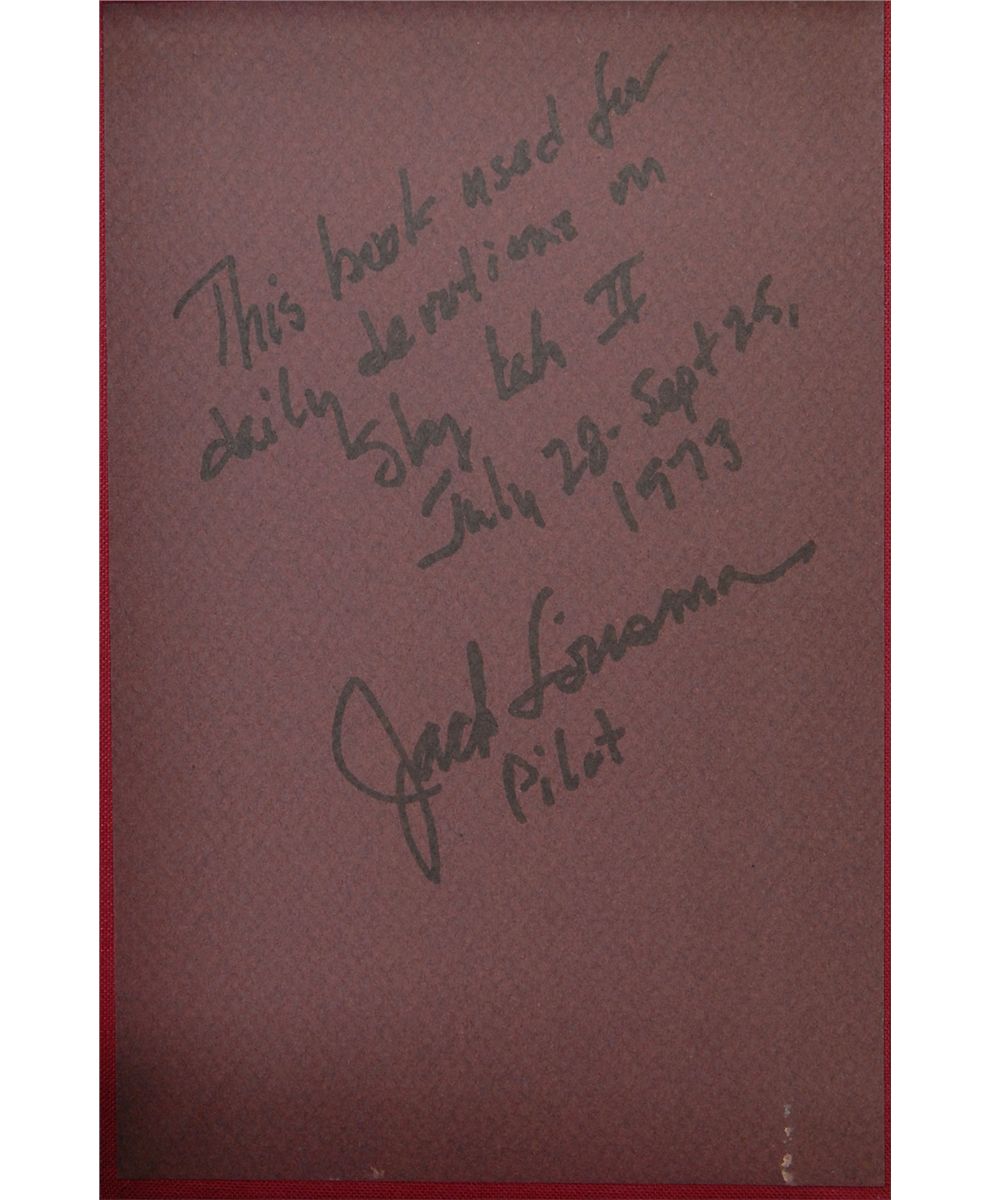 This book used for
daily devotions on
Skylab II
July 28 - Sept 25,
1973
Jack Lousma
Pilot